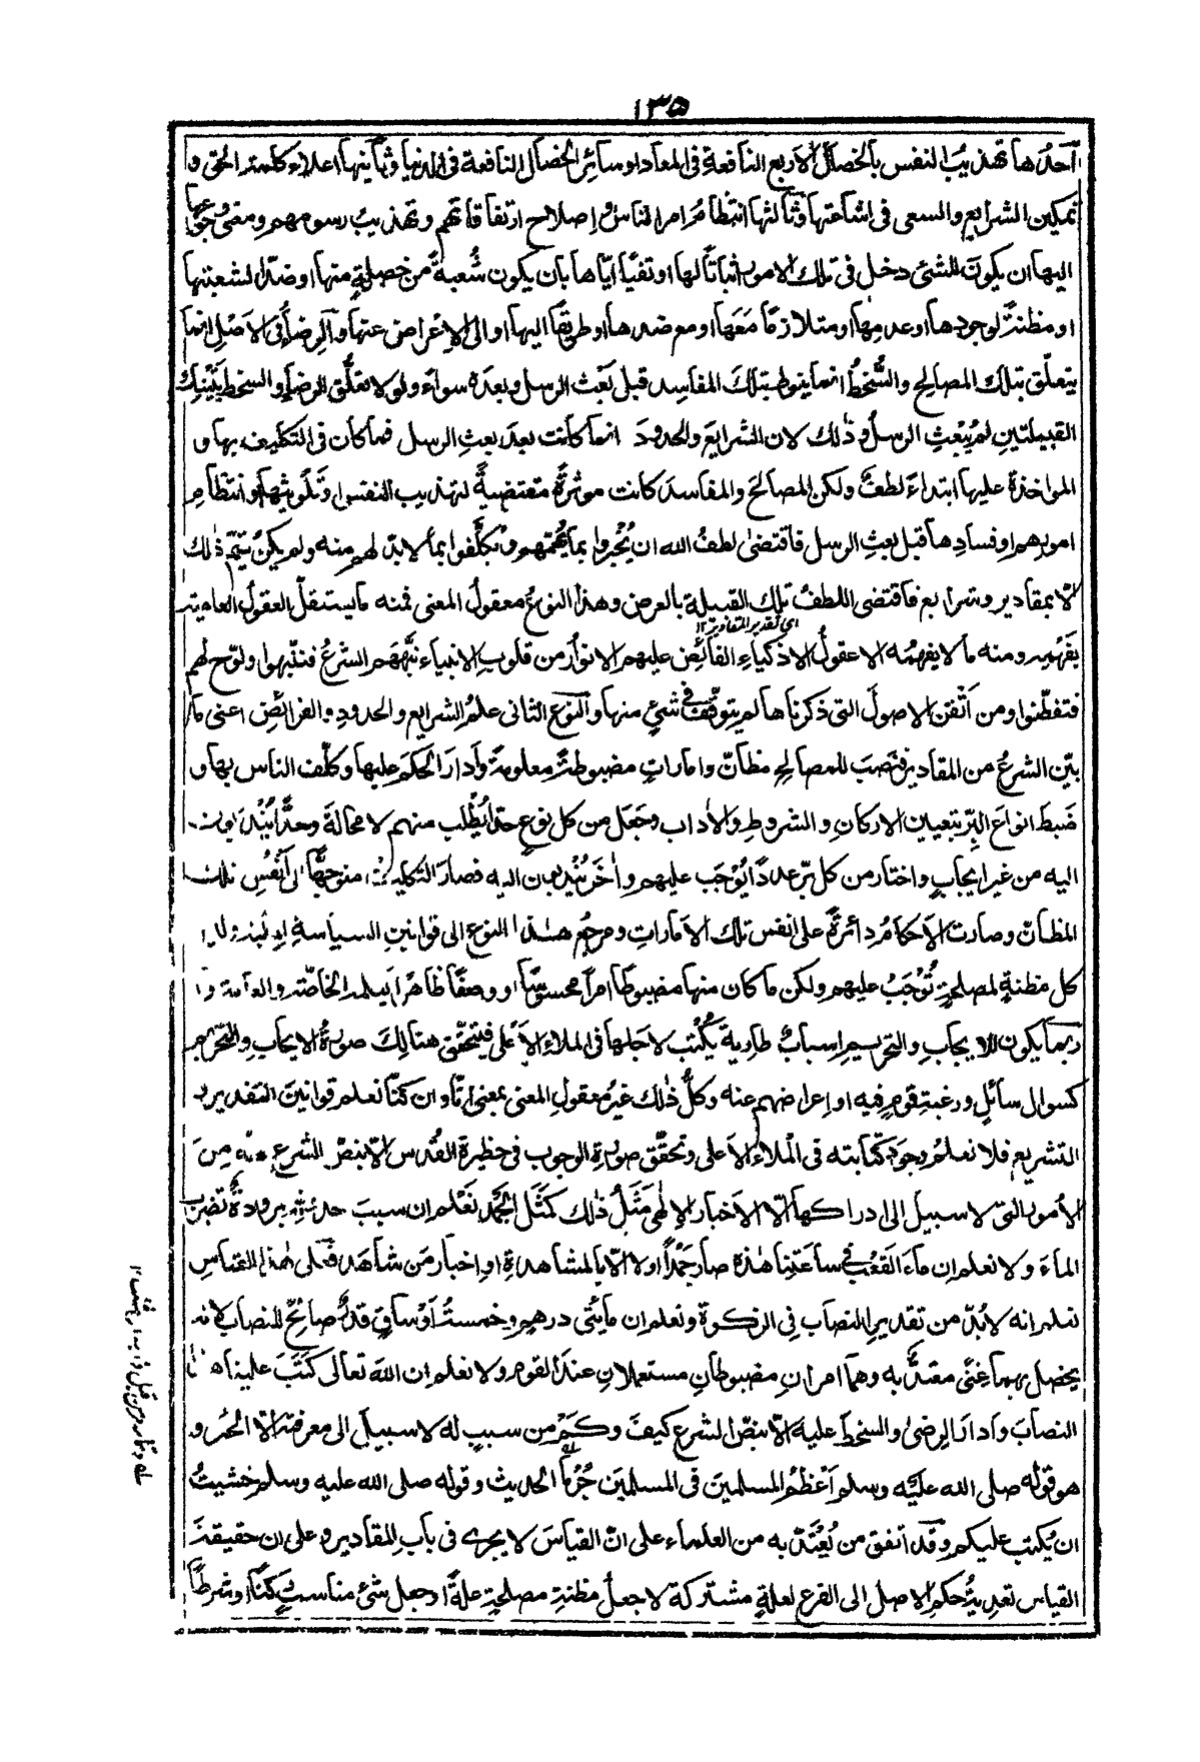 ١٣٥
احدها تهذيب النفس بالخصال الاربع النافعة فى المعاد او سائر الخصال النافعة فى الدنيا وثانيها اعلاء كلمة الحق و
تمكين الشرايع والسعى فى اشاعتها وثالثها انتظام امر الناس واصلاح ارتفاقاتهم وتهذيب رسومهم ومعنى رجوعها
اليها ان يكون للشئ دخل فى تلك الامور اثباتًا لها او نفيًا اياها بان يكون شُعبةً من خصلةٍ منها او ضدًّا لشعبتها
او مظنةً لوجودها او عدمها او متلازمًا مَعَها او مع ضدها او طريقًا اليها او الى الاِعْراض عنها والرِضاُ فى الاَصْل انما
يتعلّق بتلك المصالح والسُّخطُ انما ينوط بتلك المفاسد قبل بَعْث الرسل وبعدَه سواءً ولولا تعلُّق الرضا والسخط بتَيْنِك
القبيلتينِ لم يُبْعَثِ الرسلُ وذٰلك لان الشرايعَ والحدودَ انما كانت بعد بعثِ الرسل فما كان فى التكليف بها و
المواخذة عليها ابتداءً لطفٌ ولكن المصالحَ والمفاسدَ كانت موثرةً مقتضيةً لتهذيب النفس او تَلْويثها او انتظامِ
امورهم او فسادِها قبل بعثِ الرسل فاقتضىٰ لطفُ الله ان يُخْبَروا بما يُهمّهم ويُكلَّفوا بما لابدّ لهم منه ولم يكنْ يتمّ ذٰلك
الا بمقادير وشرايع فاقتضى اللطفُ تلك القبيلةَ بالعرض وهذا النوعُ معقولُ المعنى فمنه ما يستقلّ العقولُ العامية
اى تقدير المقادير ١٢
بفَهْمِه ومنه ما لا يفهمُه الا عقولُ الاذكياءِ الفائِض عليهم الانوارُ من قلوب الانبياء نبَّههم الشرعُ فتنبّهوا ولوّح لهم
فتفطّنوا ومن اَتْقن الاصولَ التى ذكرناها لم يتوقّف فى شئٍ منها والنوع الثانى علمُ الشرايع والحدودِ والفرائِض اعنى ما
بيّن الشرعُ من المقادير فنَصَبَ للمصالح مظانّ واماراتٍ مضبوطةً معلومةً وأدارَ الحكمَ عليها وكلّف الناس بها و
ضَبط انواعَ البِرّ بتعيين الاركانِ والشروطِ والاٰداب وجَعَل من كل نوعٍ حدًّا يُطلب منهم لا محالةَ وحدًّا يُنْدَبون
اليه من غير ايجابٍ واختار من كل بِرّ عددًا يُوْجَب عليهم واٰخَرَ يُنْدبون اليه فصارَ التكليف متوجهًا الى اَنْفُسِ تلك
المظانّ وصارت الاَحكامُ دائرةً على انفس تلك الاَماراتِ ومرجعُ هذا النوع الى قوانينِ السياسةِ
كل مظنةٍ لمصلحةٍ تُوْجَبُ عليهم ولكن ما كان منها مضبوطًا امرًا محسوسًا او وصفًا ظاهرًا يعلمه الخاصّة والعامة و
ربما يكون للايجابِ والتحريم اسبابٌ طارية يُكْتَب لاجلها فى الملاء الاَعْلى فيتحقّق هنالِك صورةُ الايجابِ والتحريم
كسوال سائلٍ ورغبةِ قومٍ فيه او اِعراضهم عنه وكلُّ ذٰلك غيرُ معقولِ المعنى بمعنى انّا وان كنّا نعلم قوانينَ التقدير و
التشريع فلا نعلمُ وجودَ كتابته فى الملاء الاَعلى وتحقّق صورةِ الوجوب فى حظيرة القُدس الّا بنصّ الشرع فانه مِنَ
الاُمور التى لا سبيل الى ادراكها اِلّا الاَخبار الاِلٰهى مَثَلُ ذٰلك كمَثَل الجَمْد نعْلم ان سبَبَ حدوثه برودةٌ تضرب
الماءَ ولا نعلم ان ماءَ القَعْب فى ساعتِنا هٰذه صار جَمْدًا او لا الّا بالمشاهدةِ او اِخبار مَن شاهَد فعلى هٰذا القياسِ
نعلم انه لابُدّ من تقديرِ النصاب فى الزكوة ونعلم ان مأتَى درهمٍ وخمسةَ اَوْساقٍ قدرٌ صالحٌ للنصاب لانه
يحصل بهما غِنًى معتدٌّ به وهما امرانِ مضبوطانِ مستعملانِ عندَ القوم ولا نعلم ان اللهَ تعالى كَتَبَ علينا هذا
النصابَ وادارَ الرِضىٰ والسخطَ عليه الّا بنصّ الشرع كيفَ وكَمْ من سببٍ له لا سبيلَ الى معرفته الّا الخبر و
هو قوله صلى الله عليه وسلم اَعْظمُ المسلمينَ فى المسلمينَ جُرْمًا الحديث وقوله صلى الله عليه وسلم خشيتُ
ان يُكتب عليكم وقد اتفق من يُعْتدّ به من العلماء على انّ القياسَ لا يجرى فى باب المقادير وعلى ان حقيقةَ
القياس تعديةُ حكمِ الاصل الى الفرع لعلةٍ مشتركة لا جعلُ مظنةِ مصلحةٍ علةً او جعل شئ مناسبٍ ركنًا او شرطًا